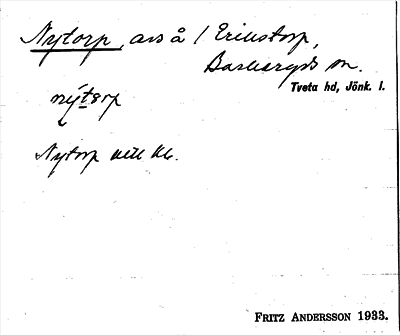 Nytorp, avs å 1 Erikstorp,
Barkeryds sn.
Tveta hd, Jönk. l.
nýtorp
Nytorp
FRITZ ANDERSSON 1933.